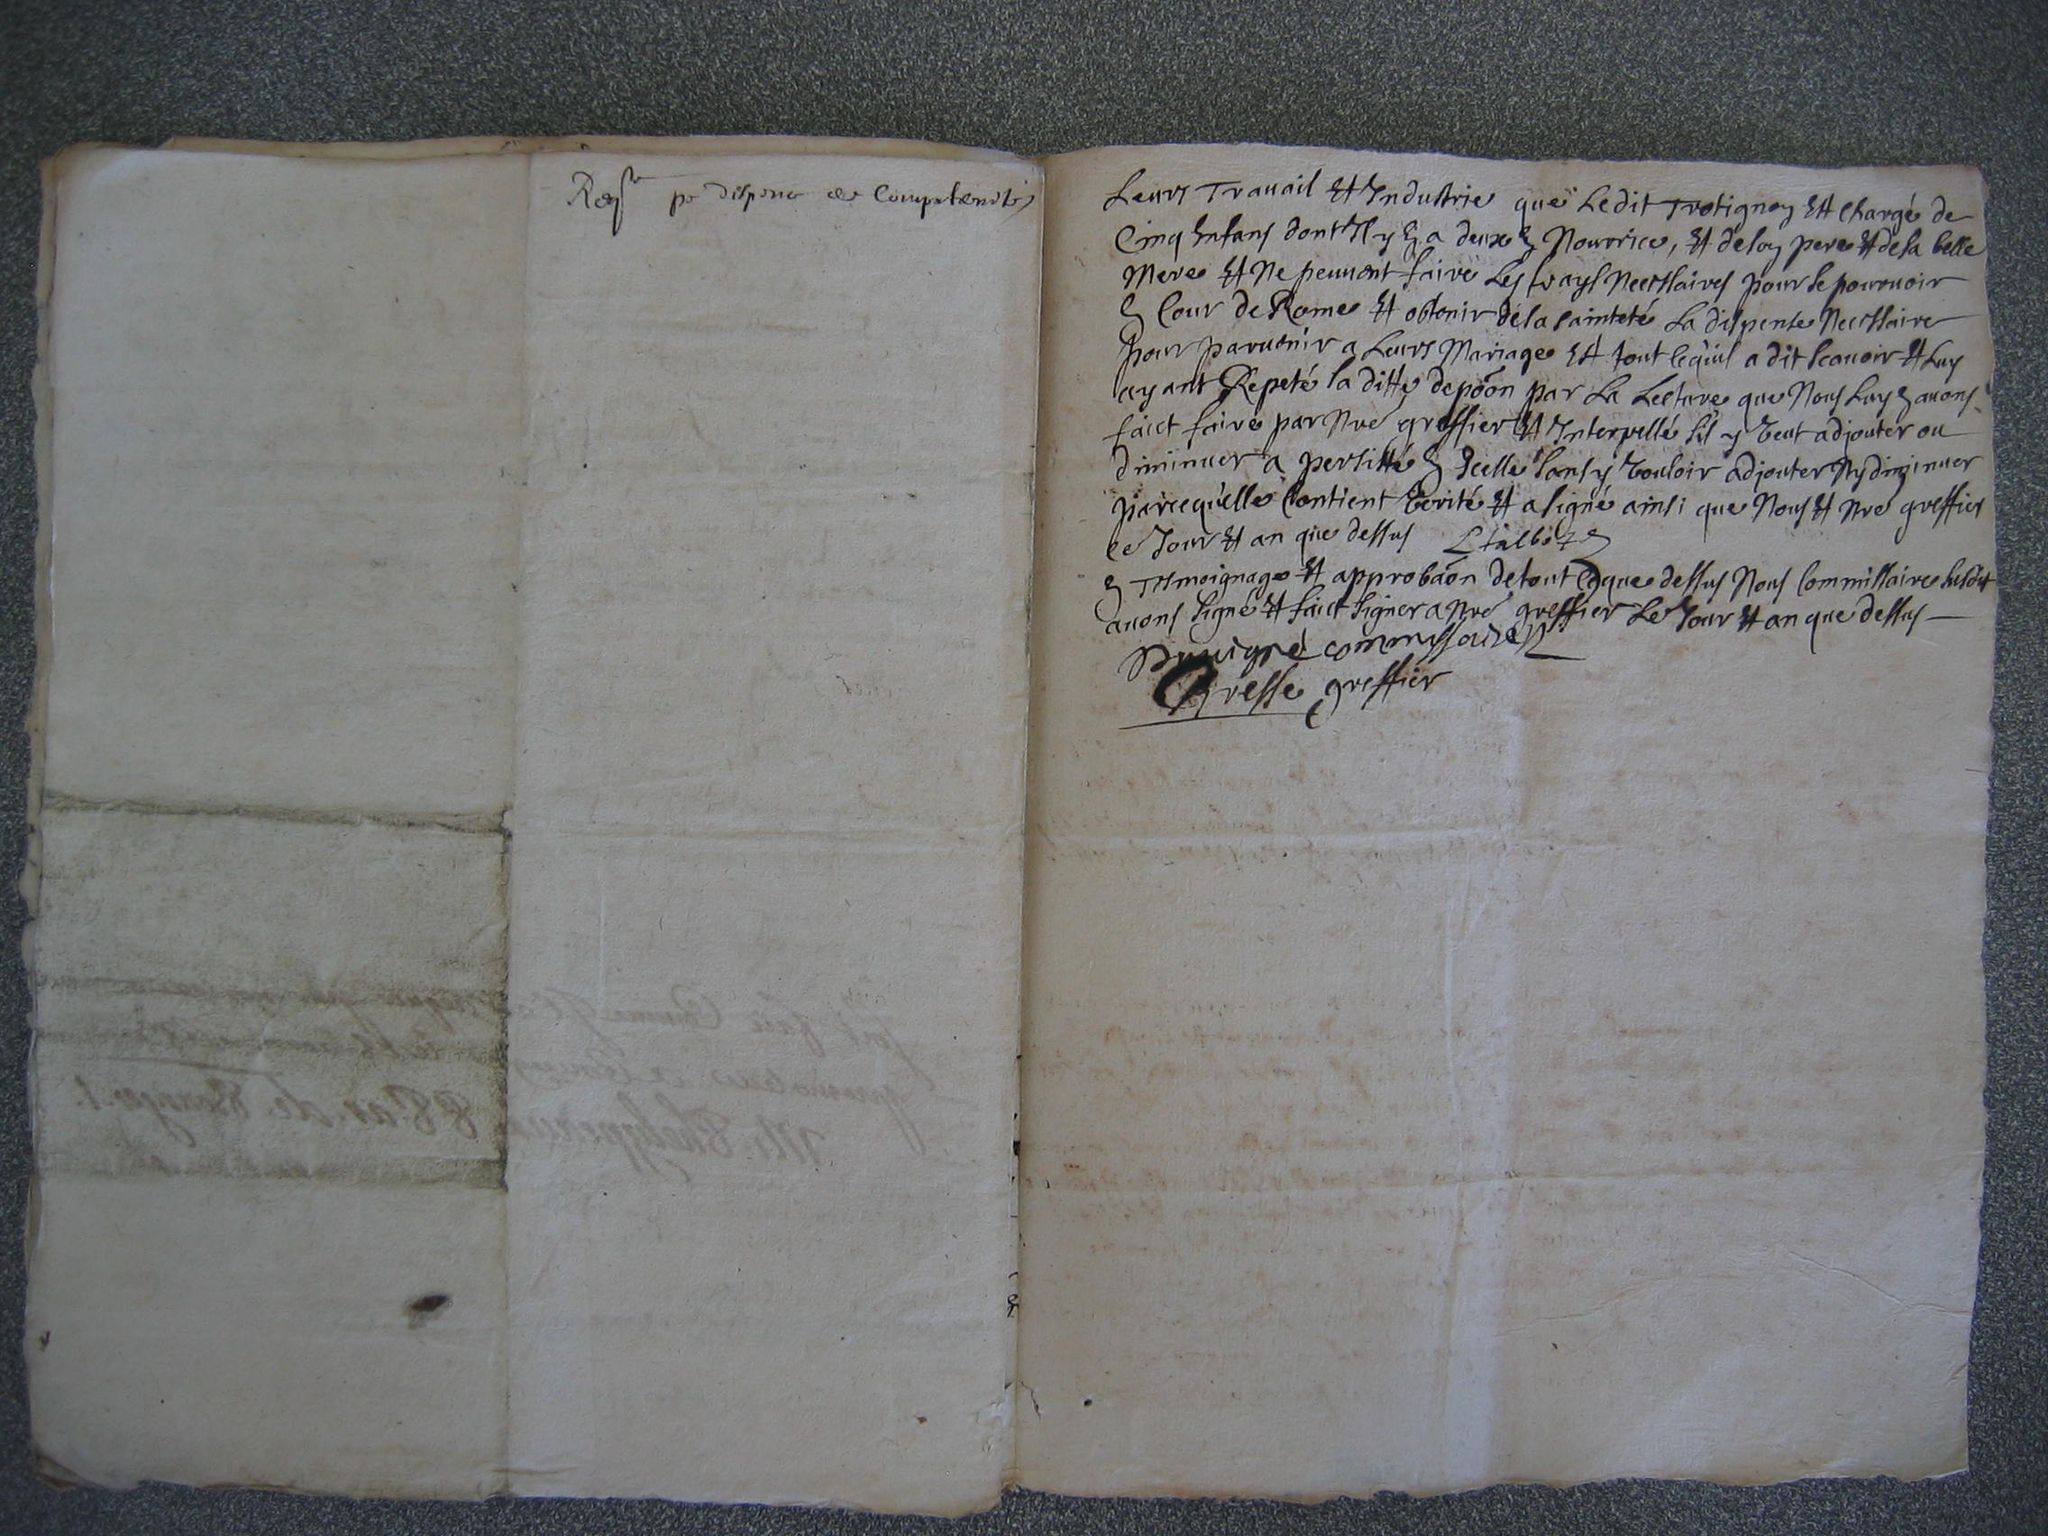 Reqte pr dispence de Compaternité
Leurs Travail Et Industrie que Ledit Trotignon Est Chargé de
Cinq Enfans dont Il y En a deux En Nourrice, Et de son pere Et de sa belle
Mere Et Ne peuvent faire Les frays Necessaires pour se pourvoir
En Cour de Rome Et obtenir de sa sainteté La dispense Necessaire
pour parvenir a Leurs Mariage Est tout ce quil a dit scavoir Et Luy
ayant Repeté sa ditte depoon par La Lecture que Nous Luy En avons
faict faire par Nre greffier Et Interpellé sil y veut adjouter ou
diminuer a persisté En Icelle sans y vouloir adjouter Ny diminuer
parcequelle Contient verité Et a signé ainsi que Nous Et Nre greffier
ce Jour Et an que dessus L talbot
En Tesmoignage Et approbaon de tout Ce que dessus Nous Commissaire susdit
avons signé Et faict signer a Nre greffier Le Jour Et an que dessus —
commissaire
Gresse greffier